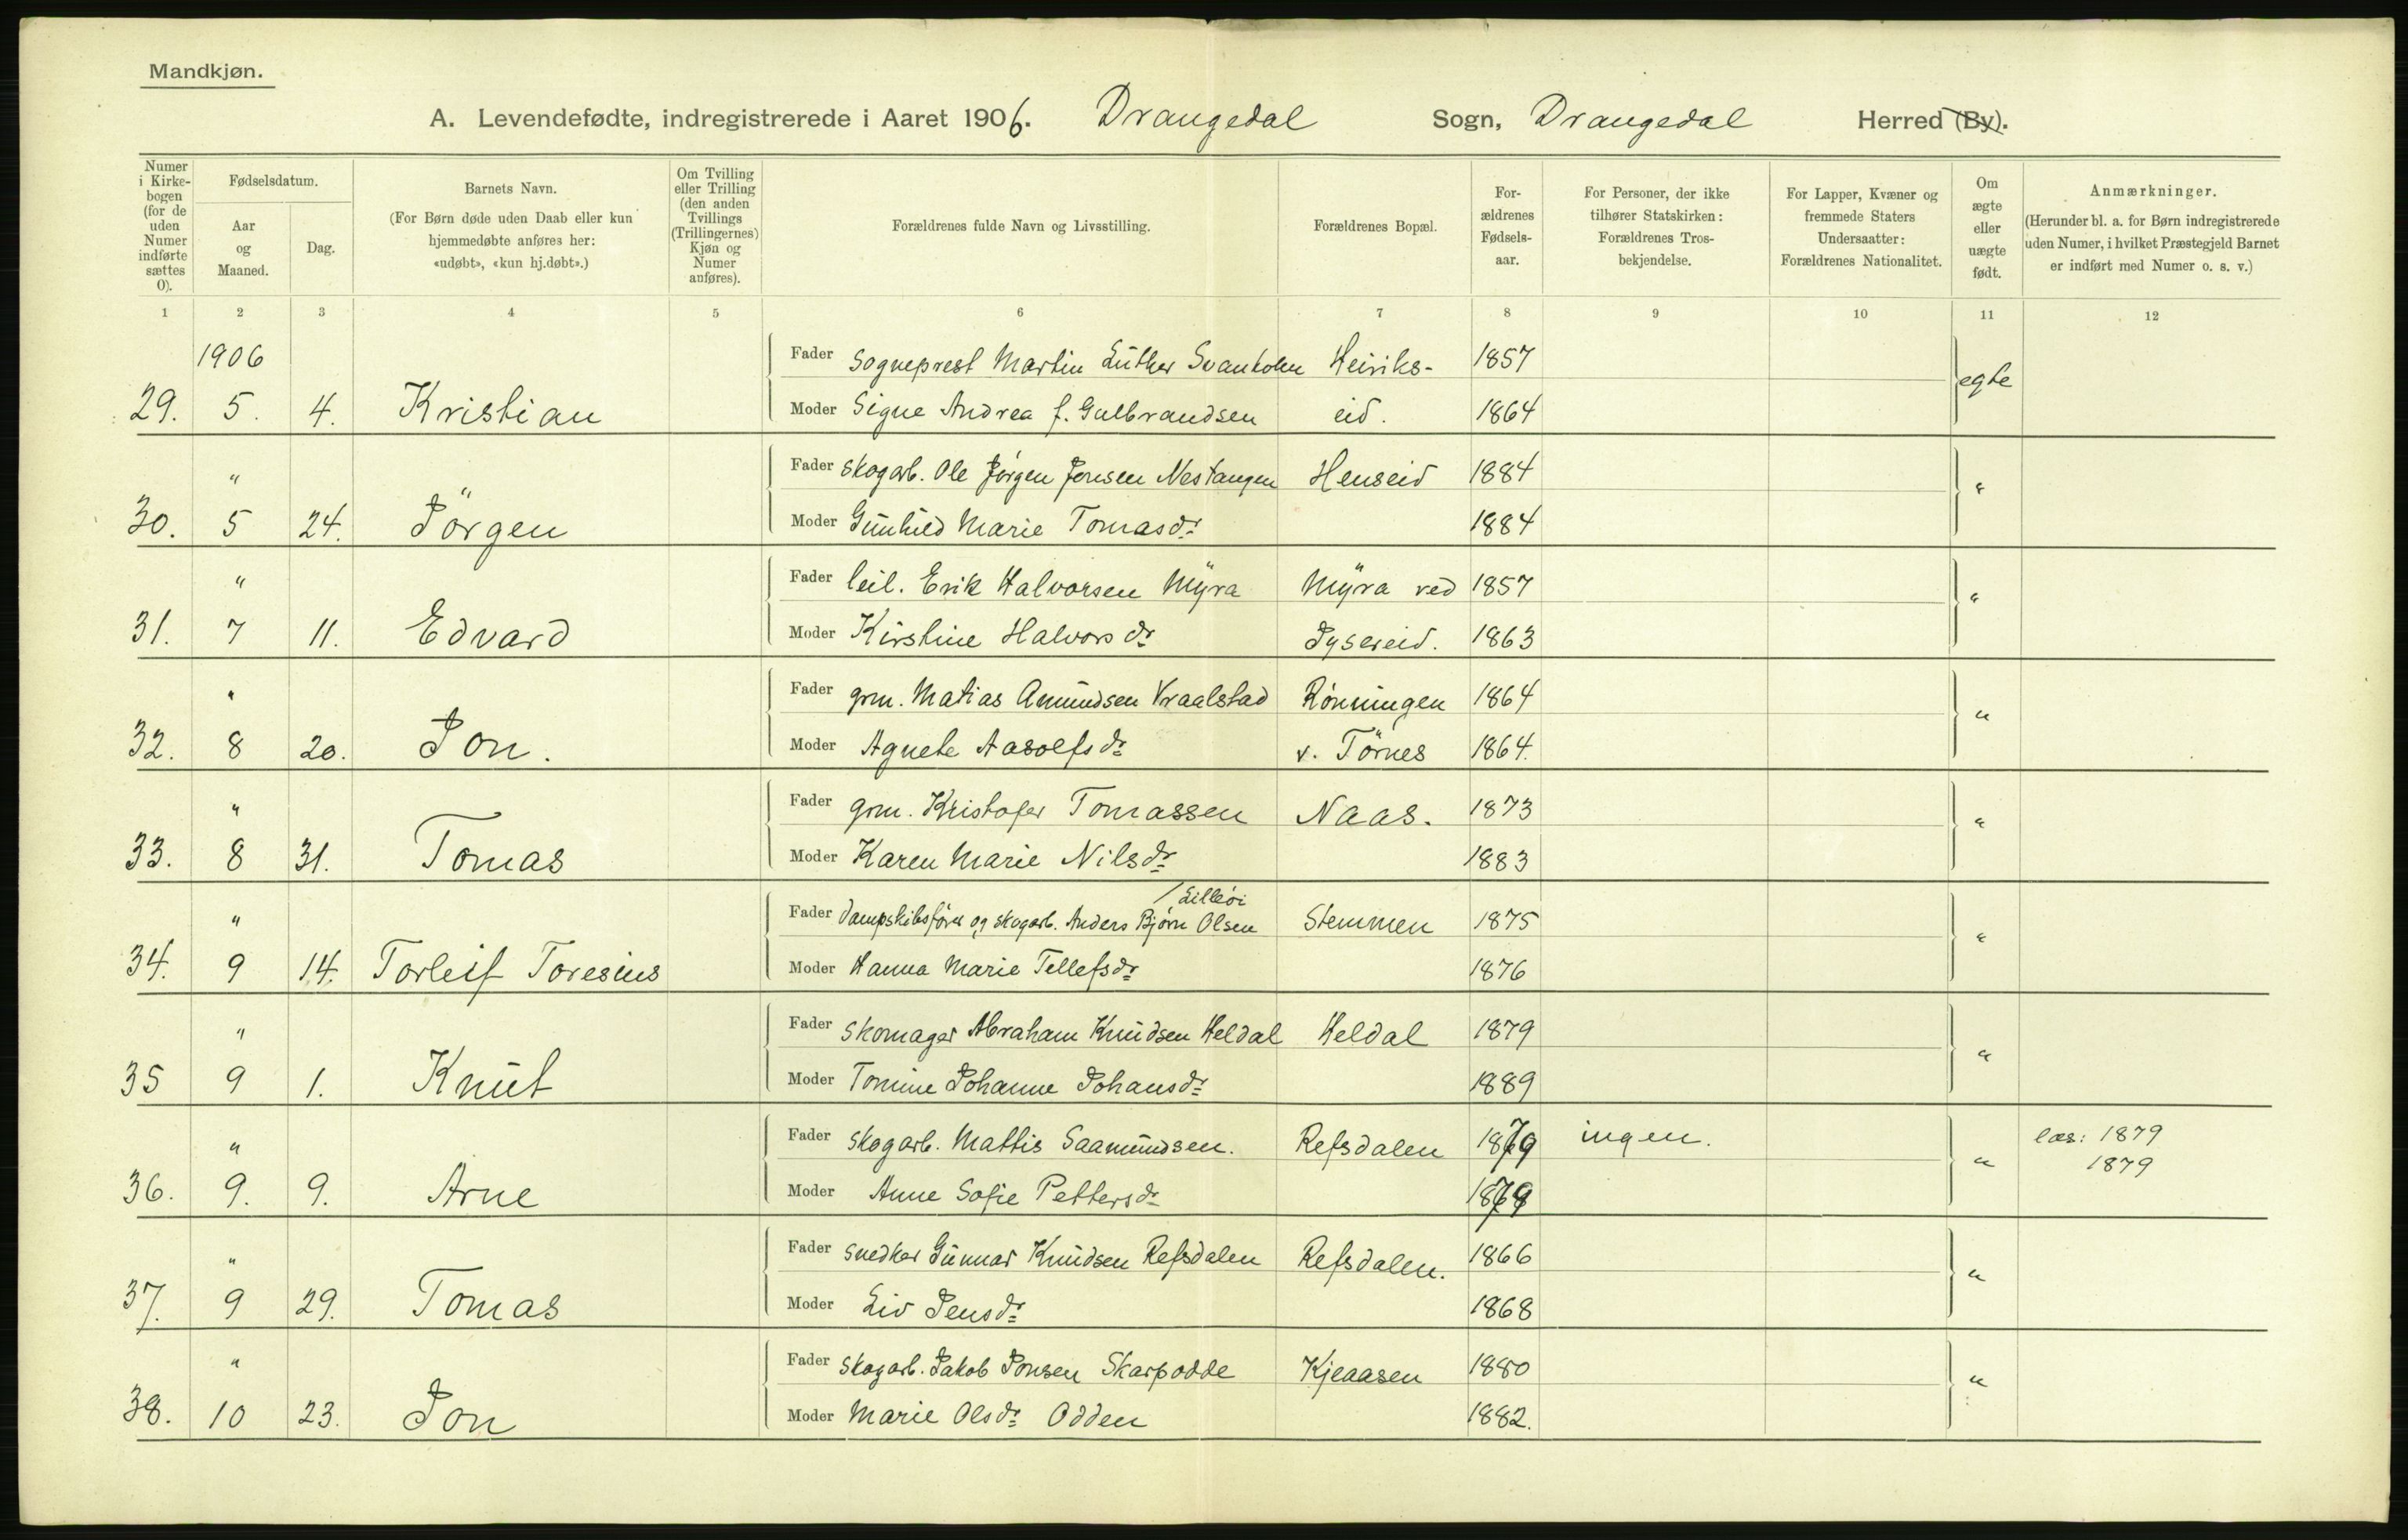 Mandkjøn.
A. Levendefødte, indregistrerede i Aaret 1906. Drangedal Sogn, Drangedal Herred (By).
Numer i Kirkebogen (for de uden Numer indførte sættes 0).
Fødselsdatum.
Aar og Maaned.
Dag.
Barnets Navn.
(For Børn døde uden Daab eller kun hjemmedøbte anføres her: «udøbt», «kun hj.døbt».)
Om Tvilling eller Trilling (den anden Tvillings (Trillingernes) Kjøn og Numer anføres).
Forældrenes fulde Navn og Livsstilling.
Forældrenes Bopæl.
Forældrenes Fødselsaar.
For Personer, der ikke tilhører Statskirken: Forældrenes Trosbekjendelse.
For Lapper, Kvæner og fremmede Staters Undersaatter: Forældrenes Nationalitet.
Om ægte eller uægte født.
Anmærkninger.
(Herunder bl. a. for Børn indregistrerede uden Numer, i hvilket Præstegjeld Barnet er indført med Numer o. s. v.)
1 2 3 4 5 6 7 8 9 10 11 12
1906 Fader Sogneprest Martin Luther Svanholm Heiriks- 1857 egte
29. 5. 4. Kristian Moder Signe Andrea f. Gulbrandsen eid. 1864
" Fader skogarb. Ole Jörgen Jonsen Nestangen Henseid 1884 "
30. 5 24. Jörgen Moder Gunhild Marie Tomasdr 1884
" Fader leil. Erik Halvorsen Myra Myra ved 1857 "
31. 7 11. Edvard Moder Kirstine Halvorsdr 1863
" Fader grm. Matias Amundsen Vraalstad Rönningen 1864 "
32. 8 20. Jon. Moder Agnete Aasolfsdr v. Törnes 1864.
" Fader grm. Kristofer Tomassen Naas. 1873 "
33. 8 31. Tomas Moder Karen Marie Nilsdr 1883
/Lilleöi
" Fader Dampskibsförer og skogarb. Anders Bjørn Olsen Stemmen 1875 "
34. 9 14. Torleif Toresius Moder Hanna Marie Tellefsdr 1876
" Fader Skomager Abraham Knudsen Heldal Heldal 1879 "
35 9 1. Knut Moder Tomine Johanne Johansdr 1889
" Fader skogarb. Mattis Saamundsen. Refsdalen 1879 ingen. " læs: 1879
1879
36. 9. 9. Arne Moder Anne Sofie Pettersdr 1879
" Fader snedker Gunnar Knudsen Refsdalen Refsdalen. 1866 "
37. 9 29. Tomas Moder Liv Jensdr 1868
" Fader skogarb. Jakob Jonsen Skarpodde Kjeaasen 1880 "
38. 10 23. Jon Moder Marie Olsdr Odden 1882.